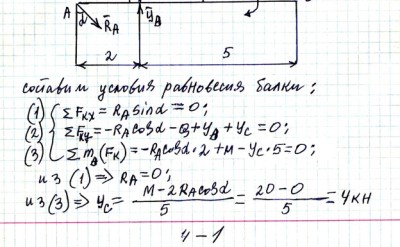 A α R̄A ȲB
2 5
составим условия равновесия балки:
(1) ΣFкх = RA sinα = 0;
(2) ΣFкy = -RA cosα - Q + YB + YC = 0;
(3) Σ mB (Fк) = -RA cosα · 2 + M - YC · 5 = 0;
из (1) => RA = 0;
из (3) => YC = M - 2RA cosα / 5 = 20 - 0 / 5 = 4 кН
4-1